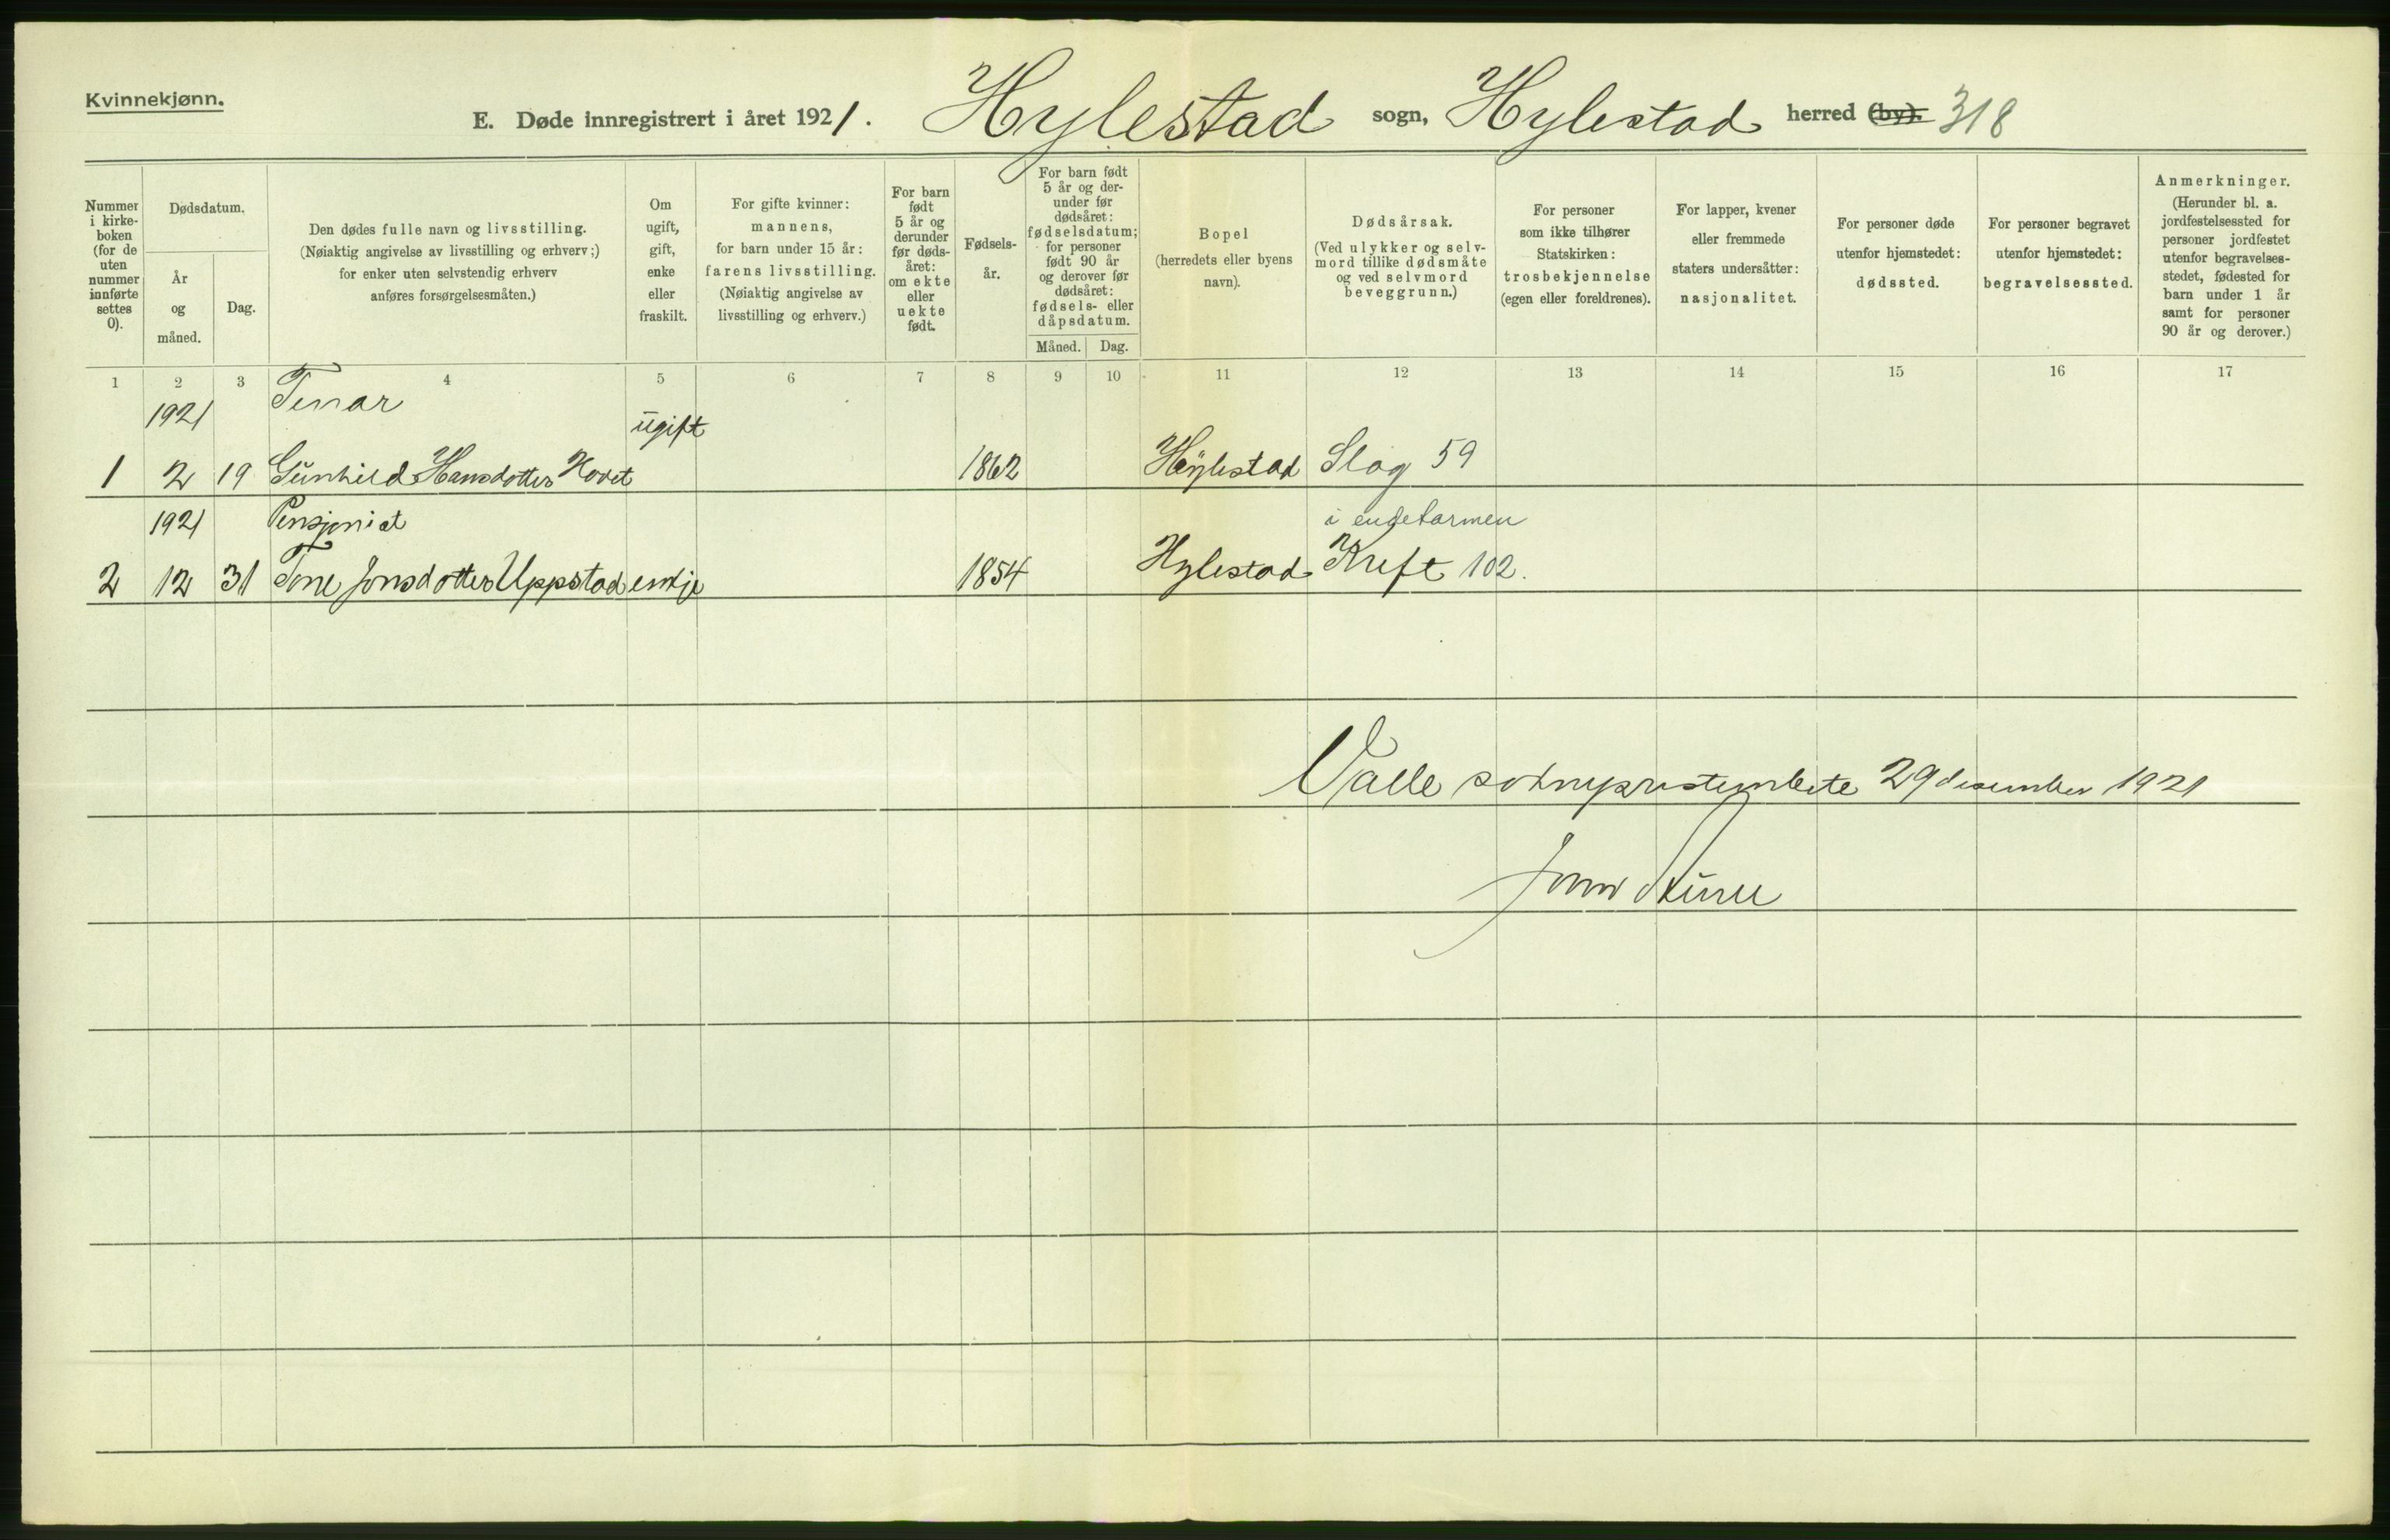 Kvinnekjønn.
E. Døde innregistrert i året 1921. Hylestad sogn, Hylestad herred (by). 318
Nummer i kirke-boken (for de uten nummer innførte settes 0).
Dødsdatum.
År og måned.
Dag.
Den dødes fulle navn og livsstilling. (Nøiaktig angivelse av livsstilling og erhverv;) for enker uten selvstendig erhverv anføres forsørgelsesmåten.)
Om ugift, gift, enke eller fraskilt.
For gifte kvinner: mannens, for barn under 15 år: farens livsstilling. (Nøiaktig angivelse av livsstilling og erhverv.)
For barn født 5 år og derunder før døds-året: om ekte eller uekte født.
Fødsels-år.
For barn født 5 år og der-under før dødsåret: fødselsdatum; for personer født 90 år og derover før dødsåret: fødsels- eller dåpsdatum.
Måned. Dag.
Bopel (herredets eller byens navn).
Dødsårsak. (Ved ulykker og selv-mord tillike dødsmåte og ved selvmord beveggrunn.)
For personer som ikke tilhører Statskirken: trosbekjennelse (egen eller foreldrenes).
For lapper, kvener eller fremmede staters undersåtter: nasjonalitet.
For personer døde utenfor hjemstedet: dødssted.
For personer begravet utenfor hjemstedet: begravelsessted.
Anmerkninger. (Herunder bl. a. jordfestelsessted for personer jordfestet utenfor begravelses-stedet, fødested for barn under 1 år samt for personer 90 år og derover.)
1 2 3 4 5 6 7 8 9 10 11 12 13 14 15 16 17
1921 Tenar ugift
1 2 19 Gunhild Hansdotter Hovet 1862 Hylestad Slag 59
1921 Pensjonist i endetarmen
2 12 31 Tone Jonsdotter Uppstad enkje 1854 Hylestad Kreft 102.
Valle sokneprestembete 29 desember 1921